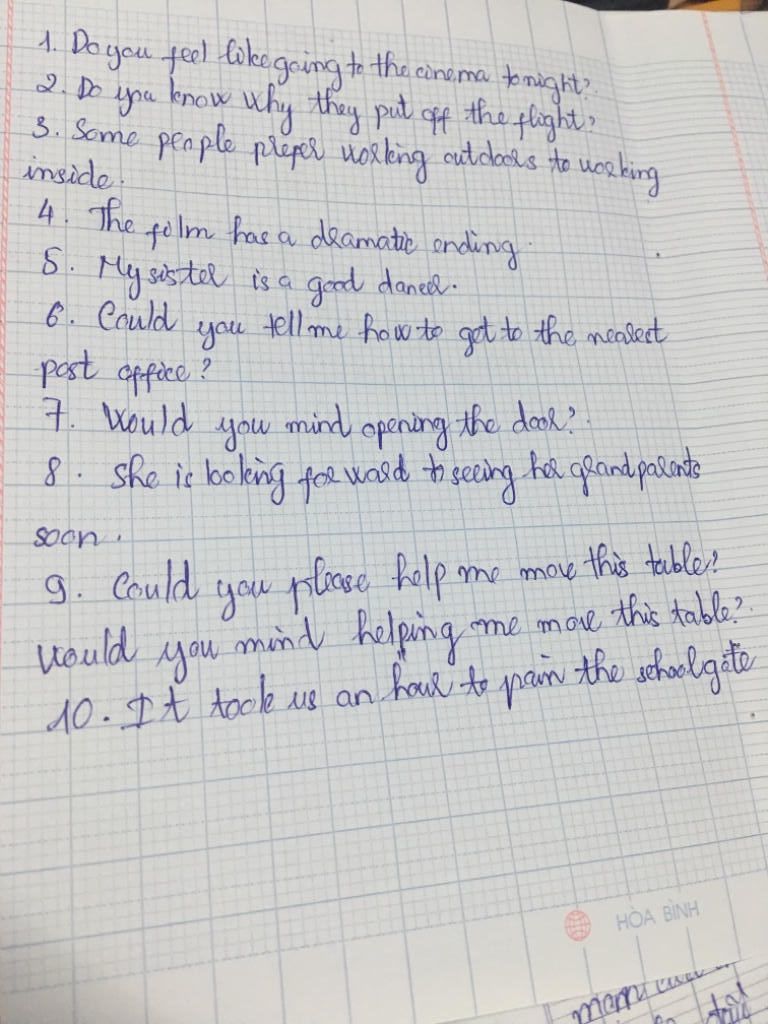 1. Do you feel like going to the cinema tonight?
2. Do you know why they put off the flight?
3. Some people prefer working outdoors to working
inside.
4. The film has a dramatic ending.
5. My sister is a good dancer.
6. Could you tell me how to get to the nearest
post office?
7. Would you mind opening the door?
8. She is looking forward to seeing her grandparents
soon.
9. Could you please help me move this table?
Would you mind helping me move this table?
10. It took us an hour to pain the school gate
HÒA BÌNH